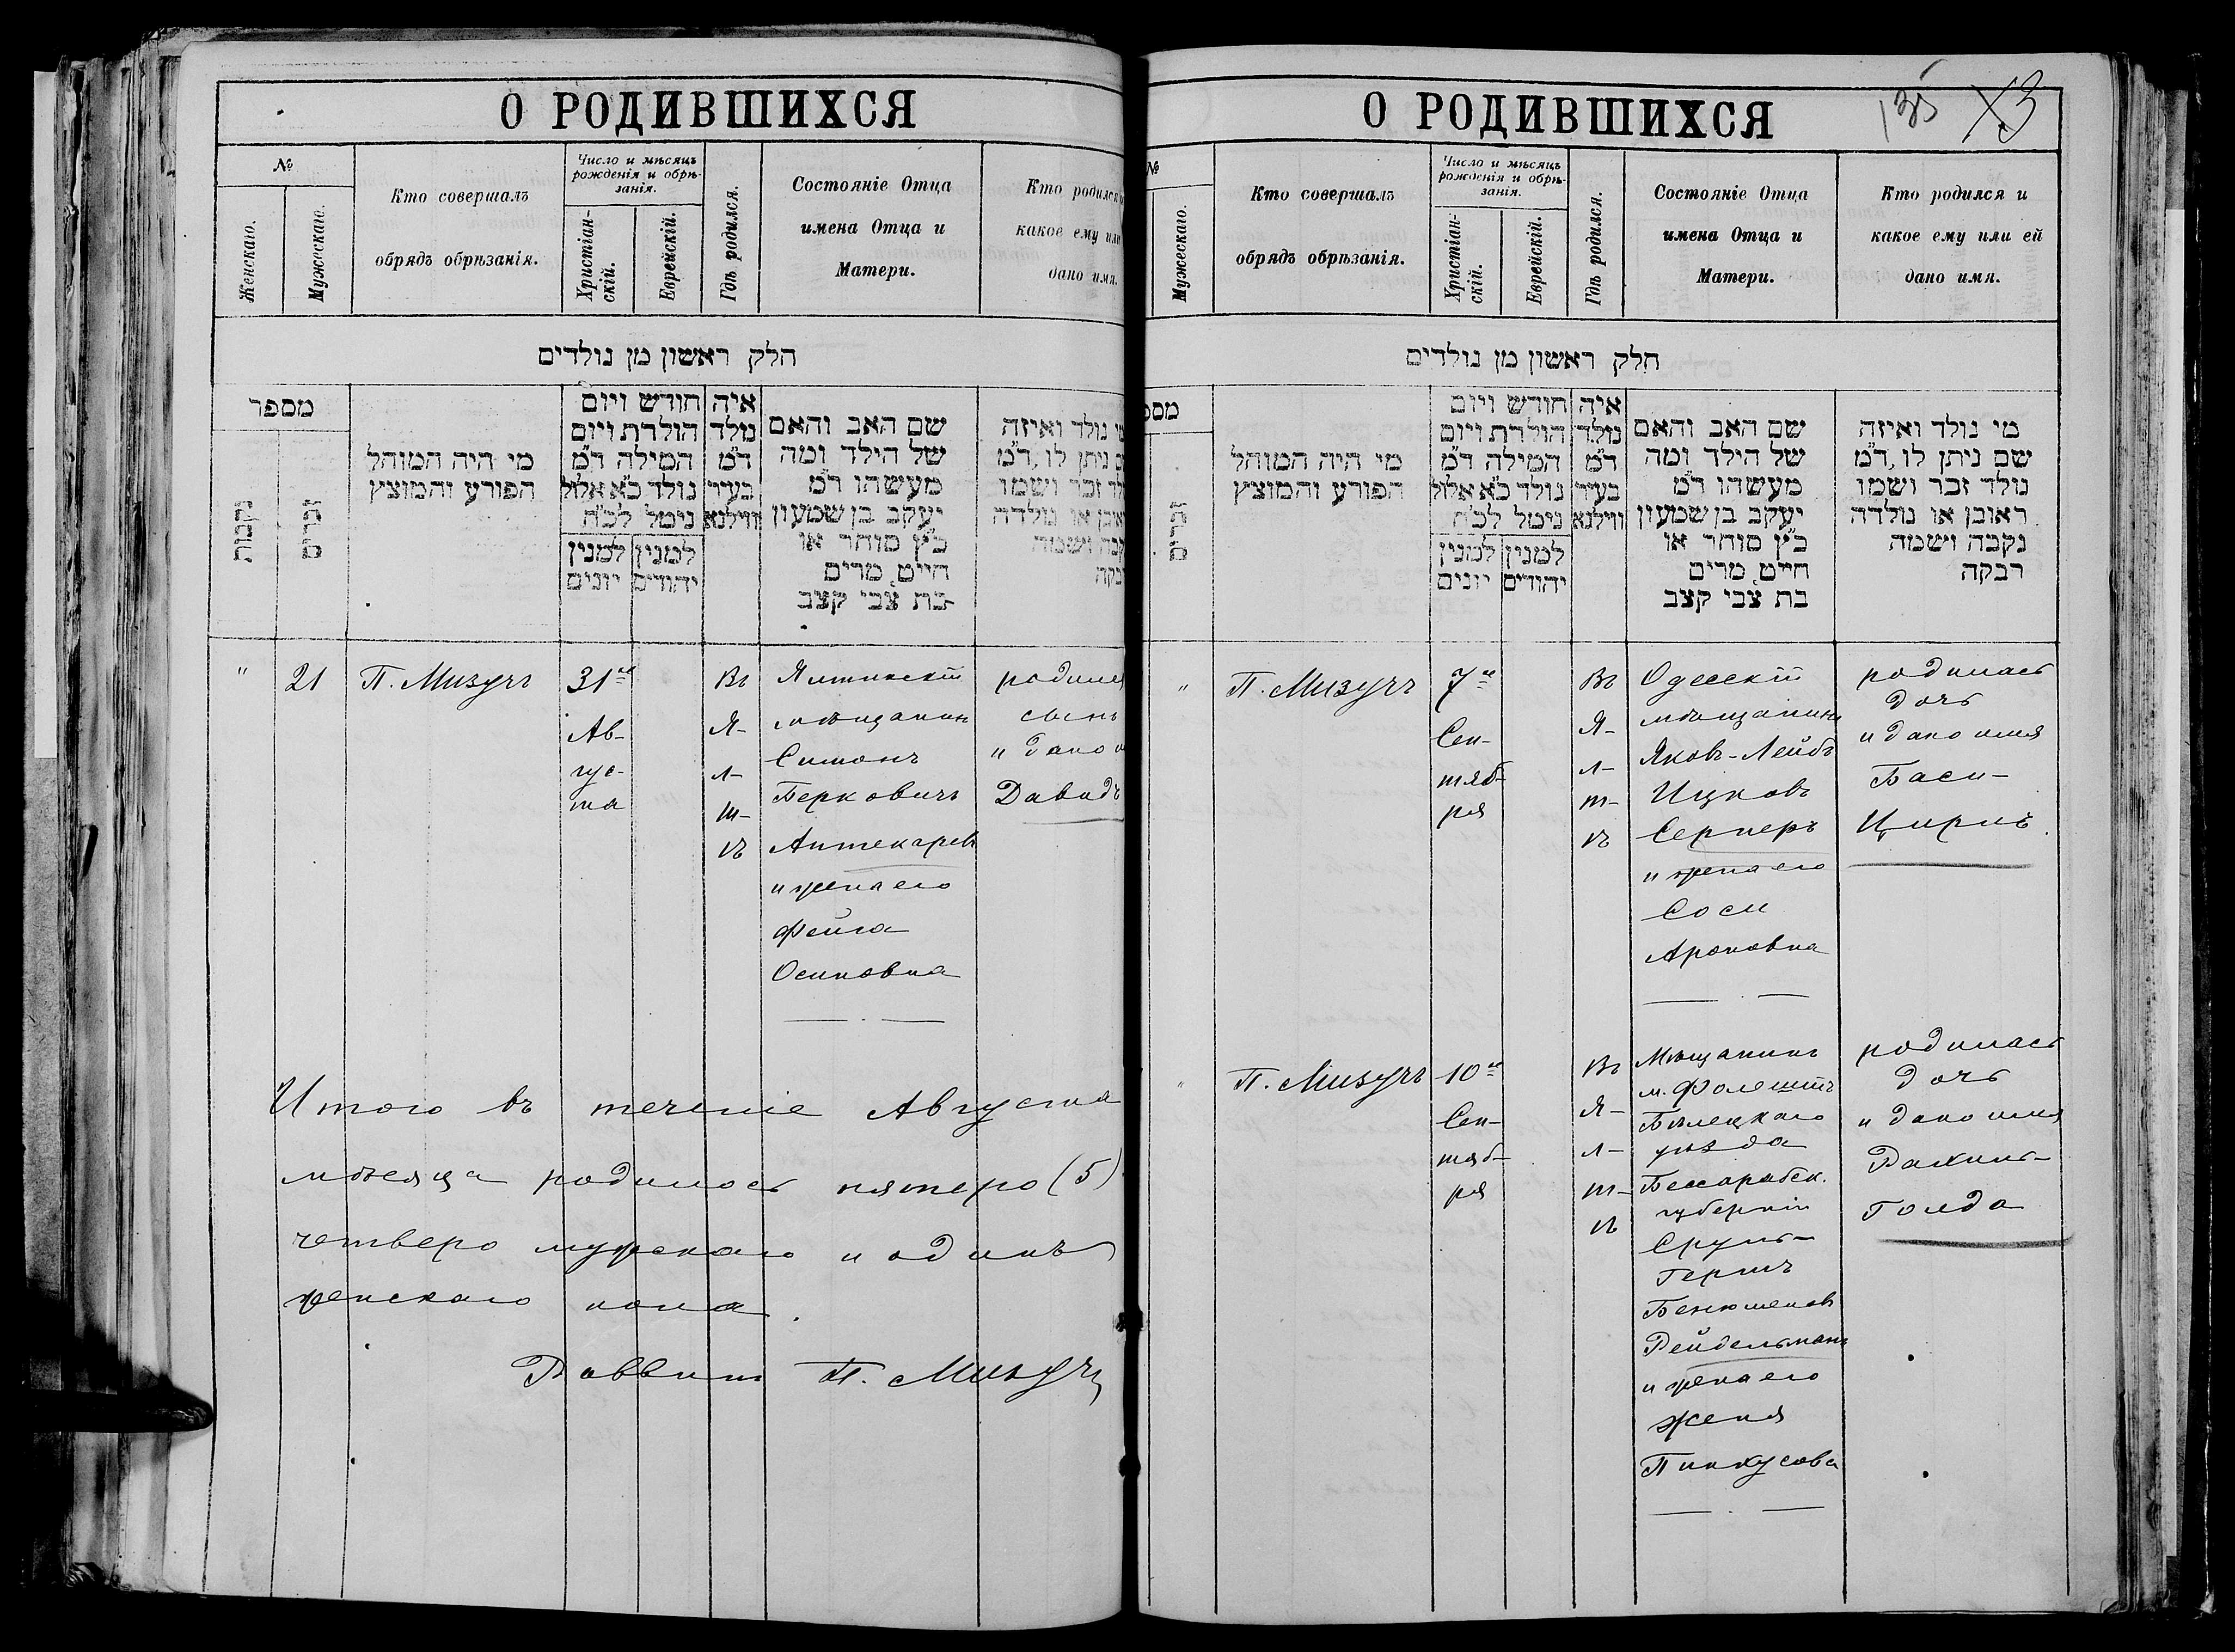 О РОДИВШИХСЯ
№
Женскаго.
Мужескаго.
Кто совершалъ
обрядъ обрѣзанія.
Число и мѣсяцъ
рожденія и обрѣ-
занія.
Христіан-
скій.
Еврейскій.
Гдѣ родился.
Состояніе Отца
имена Отца и
Матери.
Кто родился
какое ему или
дано имя.
חלק ראשון מן נולדים
מספר
נקבות
זכרים
מי היה המוהל
הפורע והמוצץ
חודש ויום
הולדת ויום
המילה ד״מ
נולד כ״א אלול
נימל לכ״ח
למנין
יונים
למנין
יהודים
איה
נולד
ד״מ
בעיר
ווילנא
שם האב והאם
של הילד ומה
מעשהו ד״מ
יעקב בן שמעון
כ״ץ סוחר או
חייט, מרים
בת צבי קצב
נולד ואיזה
ניתן לו, ד״מ
זכר ושמו
או נולדה
ושמה
"
21
П. Мизучъ
31го
Ав-
гус-
та
Въ
Я-
л-
т-
ѣ
Ялтинскій
мѣщанинъ
Симонъ
Берковичъ
Аптекаревъ
и жена его
Фейга
Осиповна
родился
сынъ
и дано
Давидъ
Итого въ теченіе Августа
мѣсяца родилось пятеро (5)
четверо мужскаго и одинъ
женскаго пола.
Раввинъ П. Мизучъ
О РОДИВШИХСЯ
135
№
Мужескаго.
Кто совершалъ
обрядъ обрѣзанія.
Число и мѣсяцъ
рожденія и обрѣ-
занія.
Христіан-
скій.
Еврейскій.
Гдѣ родился.
Состояніе Отца
имена Отца и
Матери.
Кто родился и
какое ему или ей
дано имя.
חלק ראשון מן נולדים
זכרים
מי היה המוהל
הפורע והמוצץ
חודש ויום
הולדת ויום
המילה ד״מ
נולד כ״א אלול
נימל לכ״ח
למנין
יונים
למנין
יהודים
איה
נולד
ד״מ
בעיר
ווילנא
שם האב והאם
של הילד ומה
מעשהו ד״מ
יעקב בן שמעון
כ״ץ סוחר או
חייט, מרים
בת צבי קצב
מי נולד ואיזה
שם ניתן לו, ד״מ
נולד זכר ושמו
ראובן או נולדה
נקבה ושמה
רבקה
"
П. Мизучъ
7го
Сен-
тяб-
ря
Въ
Я-
л-
т-
ѣ
Одесскій
мѣщанинъ
Яковъ-Лейбъ
Ицковъ
Серперъ
и жена его
Соси
Ароновна
родилась
дочь
и дано имя
Баси-
Циринъ
"
П. Мизучъ
10го
Сен-
тяб-
ря
Въ
Я-
л-
т-
ѣ
Мѣщанинъ
м. Фолештъ
Бѣлецкаго
уѣзда
Бессарабск.
губерніи
Сруль-
Гершъ
Бенюменовъ
Рейдельманъ
и жена его
Женя
Пинкусова
родилась
дочь
и дано имя
Рахиль-
Голда